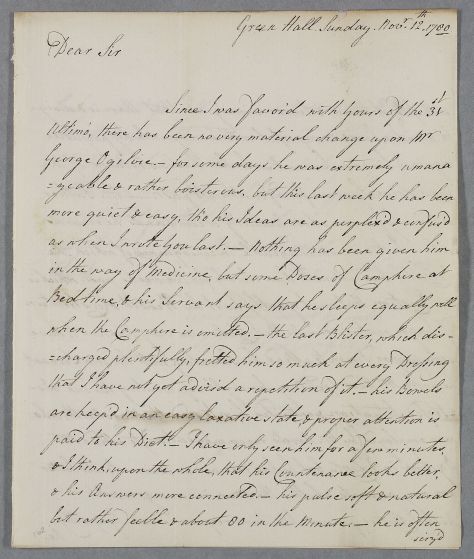 Green Hall. Sunday. Novr. 12th. 1780
Dear Sir
Since I was favor'd with Yours of the 31st
Ultimo, there has been no very material change upon Mr
George Ogilvie. — for some days he was extremely unmana
=geable & rather boisterous, but this last week he has been
more quiet & easy, tho his Ideas are as perplex'd & confus'd
as when I wrote You last. — Nothing has been given him
in the way of Medicine, but some Doses of Camphire at
Bed time, & his Servant says that he sleeps equally well
when the Camphire is omitted. — the last Blister, which dis-
=charged plentifully, fretted him so much at every Dressing
that I have not yet advis'd a repetition of it. — his Bowels
are keep'd in an easy laxative state & proper attention is
paid to his Diet. — I have only seen him for a few minutes,
& I think, upon the whole, that his Countenance looks better,
& his Answers more connected. — his pulse soft & natural
but rather feeble & about 80 in the Minute. — he is often
seiz'd